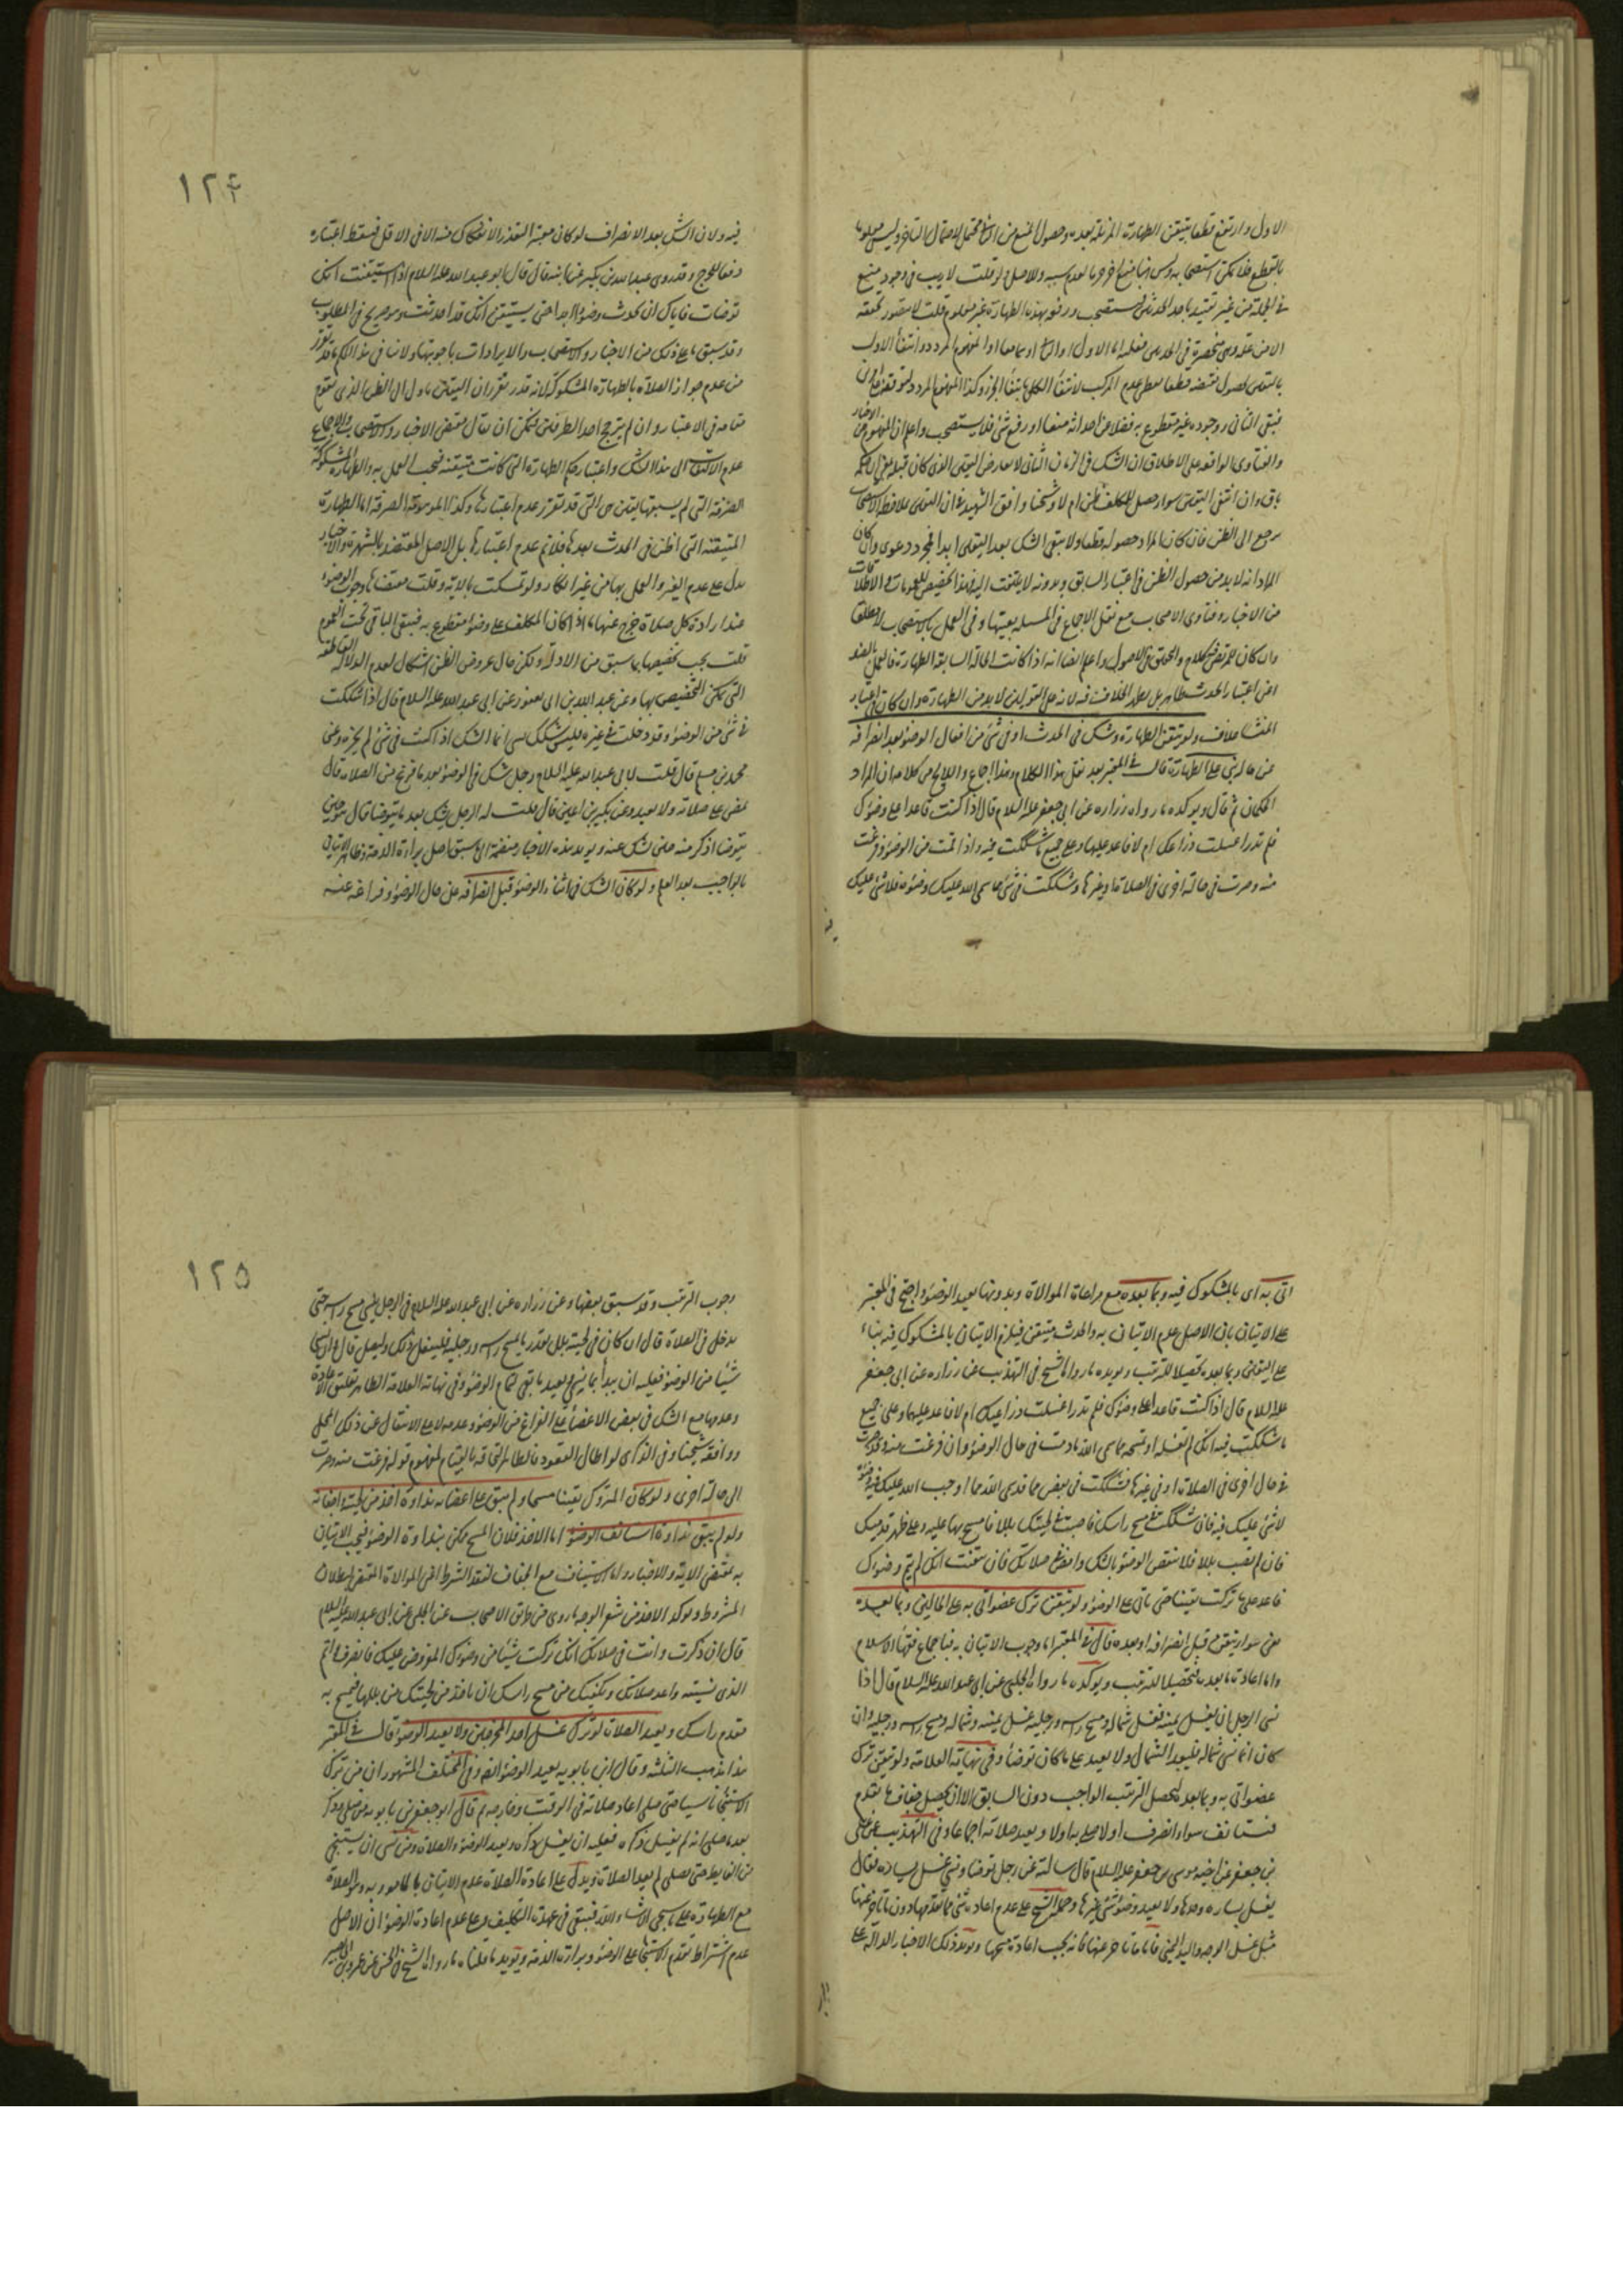 الاول وارتفع قطعا بتيقن الطهارة المزيلة بعده وحصول المنع من الثاني محتمل لاحتمال التأخر وليس معلوما
بالقطع فلا يمكن استصحابه وليس هنا منع اخر هنا لعدم سببه وللاصل فلو قلت لا ريب في وجود منع
في الجملة من غير تقييد باحد الحدثين فيستصحب ورفعه بهذه الطهارة غير معلوم قلت لا يتصور تحققه
الا من
فبقى الثاني ووجوده غير مقطوع به فضلا عن احداثه منعا او رفع شئ فلا يستصحب واعلم ان المفهوم من الاخبار
والفتاوى الواقعة على الاطلاق ان الشك في الزمان الثاني لا يعارض اليقين الذي كان قبله بل الحكم
باق وان انتفى اليقين سواء حصل للمكلف ظن ام لا وشيخنا وافق الشهيد في ان اليقين
يرجع الى الظن فان كان المراد حصوله قطعا ولا يبقى الشك بعد اليقين ابدا فمجرد دعوى وان كان
المراد انه لا بد من حصول الظن في اعتبار السابق وبدونه لا يلتفت اليه فهذا تخصيص للعمومات والاطلاقات
من الاخبار وفتاوى الاصحاب مع نقل الاجماع في المسئلة بعينها وفي العمل بالاستصحاب مطلقا
وان كان للمرتضى كلام والمحقق في الاصول واعلم ايضا انه اذا كانت الحالة السابقة الطهارة فالعمل بالضد
اعني اعتبار الحدث ظاهر بل يظهر الخلاف فيه لانه على القولين لا بد من الطهارة وان كان في اعتبار
المنشأ خلاف ولو تيقن الطهارة وشك في الحدث او في شئ من افعال الوضوء بعد انصرافه
عن حاله بنى على الطهارة قال في المعتبر بعد نقل هذا الكلام وهذا اجماع واللايح من كلامه ان المراد
المكان ثم قال ويؤكده ما رواه زرارة عن ابي جعفر عليه السلام قال اذا كنت قاعدا على وضوئك
فلم تدر اغسلت ذراعك ام لا فاعد عليها وعلى جميع ما شككت فيه واذا قمت من الوضوء وفرغت
منه وصرت في حالة اخرى في الصلاة او غيرها وشككت في شئ مما سمى الله عليك وضوءه فلا شئ عليك
١٢٤
فيه ولان الشك بعد الانصراف لو كان معتبرا لتعذر الانفكاك منه الا في الاقل فيسقط اعتباره
دفعا للحرج وقد روى عبد الله بن بكير عن ابيه قال قال ابو عبد الله عليه السلام اذا استيقنت انك
توضات فاياك ان تحدث وضوءا ابدا حتى يستيقن انك قد احدثت وهو صريح في المطلوب
وقد سبق ما على ذلك من الاخبار والاستصحاب والايرادات باجوبتها ولا ينافي هذا الحكم ما قد تقرر
من عدم جواز الصلاة بالطهارة المشكوكة لانه قد تقرر ان اليقين يأول الى الظن الذي يقوم
مقامه في الاعتبار وان لم يترجح احد الطرفين فيمكن ان يقال بمقتضى الاخبار والاستصحاب والاجماع
عدم الالتفات الى هذا الشك واعتبار حكم الطهارة التي كانت متيقنة فيجب العمل به والطهارة المشكوكة
الصرفة التي لم يسبقها يقين هي التي قد تقرر عدم اعتبارها وكذا الموهومة الصرفة اما الطهارة
المتيقنة التي اظن في الحدث بعدها فلا نم عدم اعتبارها بل الاصل المعتضد بالشهرة والاخبار
يدل على عدم الغير والعمل بها من غير انكار ولو تمسكت بالآية وقلت مقتضاها وجوب الوضوء
عند ارادة كل صلاة خرج عنها ما اذا كان المكلف على وضوء مقطوع به فبقى الباقي تحت العموم
قلت يجب تخصيصها بما سبق من الادلة ولكن حال عروض الظن اشكال لعدم الدلالة القاطعة
التي يمكن التخصيص بها وعن عبد الله بن ابي يعفور عن ابي عبد الله عليه السلام قال اذا شككت
في شئ من الوضوء وقد دخلت في غيره فليس شكك بشئ انما الشك اذا كنت في شئ لم تجزه وعن
محمد بن مسلم قال قلت لابي عبد الله عليه السلام رجل شك في الوضوء بعد ما فرغ من الصلاة قال
يمضي على صلاته ولا يعيد وعن بكير بن اعين قال قلت له الرجل يشك بعد ما يتوضا قال هو حين
يتوضا اذكر منه حين يشك عنه ويؤيد هذه الاخبار منضمة الى ما سبق اصل براءة الذمة وظاهر الاتيان
بالواجب بعد العلم ولو كان الشك في اثناء الوضوء قبل انصرافه عن حال الوضوء وفراغه عنه
اتى به اى بالمشكوك فيه وبما بعده مع مراعاة الموالاة وبدونها يعيد الوضوء واحتج في المعتبر
على الاتيان بان الاصل عدم الاتيان به والحدث متيقن فيلزم الاتيان بالمشكوك فيه بناء
على اليقين وبما بعده تحصيلا للترتيب ويؤيده ما رواه الشيخ في التهذيب عن زرارة عن ابي جعفر
عليه السلام قال اذا كنت قاعدا على وضوئك فلم تدر اغسلت ذراعيك ام لا فاعد عليهما وعلى جميع
ما شككت فيه انك لم تغسله او تمسحه مما سمى الله ما دمت في حال الوضوء وان فرغت منه وقد صرت
في حال اخرى في الصلاة او في غيرها فشككت في بعض ما قد سمى الله مما اوجب الله عليك فيه وضوءه
لا شئ عليك فيه فان شككت في مسح راسك فاصبت في لحيتك بللا فامسح بها عليه وعلى ظهر قدميك
فان لم تصب بللا فلا تنقض الوضوء بالشك وامض في صلاتك فان تيقنت انك لم تتم وضوءك
فاعد على ما تركت يقينا حتى تأتي على الوضوء ولو تيقن ترك عضو اتى به على الحالين وبما بعده
معنى سواء تيقن قبل انصرافه او بعده قال في المعتبر اما وجوب الاتيان به فباجماع فقهاء الاسلام
واما اعادة ما بعده فتحصيلا للترتيب ويؤكده ما رواه الحلبي عن ابي عبد الله عليه السلام قال اذا
نسى الرجل ان يغسل يمينه فغسل شماله ومسح راسه ورجليه غسل يمينه وشماله ومسح راسه ورجليه وان
كان انما نسى شماله فليعد الشمال ولا يعيد على ما كان توضأ وفي نهاية العلامة ولو تيقن ترك
عضو اتى به وبما بعده ليحصل الترتيب الواجب دون السابق الا ان يحصل جفاف ما تقدم
فيستانف سواء انصرف اولا صلى به اولا ويعيد صلاته اجماعا وفي التهذيب عن علي
بن جعفر عن اخيه موسى بن جعفر عليه السلام قال سالته عن رجل توضأ ونسى غسل يساره فقال
يغسل يساره وحدها ولا يعيد وضوء شئ غيرها وحمله الشيخ على عدم اعادة شئ مما تقدمها دون ما تأخر عنها
مثل غسل الوجه واليد اليمنى فاما ما تأخر عنها فانه يجب اعادة مسحها ويؤيد ذلك الاخبار الدالة على
١٢٥
وجوب الترتيب وقد سبق بعضها وعن زرارة عن ابي عبد الله عليه السلام في الرجل ينسى مسح راسه حتى
يدخل في الصلاة قال ان كان في لحيته بلل بقدر ما يمسح راسه ورجليه فليفعل ذلك وليصل قال وان نسى
شيئا من الوضوء فعليه ان يبدأ بما نسى ويعيد ما بقى لتمام الوضوء وفي نهاية العلامة الظاهر تعليق الاعادة
وعدمها مع الشك في بعض الاعضاء على الفراغ من الوضوء وعدمه لا على الانتقال عن ذلك المحل
ووافقه شيخنا وفي الذكرى لو اطال القعود فالظاهر التحاقه بالقيام لمفهوم قوله فرغت منه وصرت
الى حالة اخرى ولو كان المتروك يقينا مسحا ولم يبق على اعضائه نداوة اخذ من لحيته واجفانه
ولو لم يبق نداوة استانف الوضوء اما الاخذ فلان المسح ممكن بنداوة الوضوء فيجب الاتيان
به بمقتضى الاية والاخبار واما الاستيناف مع الجفاف لفقد الشرط اعني الموالاة المقتضى لبطلان
المشروط ويؤكد الاخذ من شعر الوجه ما روى من طرق الاصحاب عن الحلبي عن ابي عبد الله عليه السلام
قال ان ذكرت وانت في صلاتك انك تركت شيئا من وضوئك المفروض عليك فانصرف واتم
الذي نسيته واعد صلاتك ويكفيك من مسح راسك ان تاخذ من لحيتك من بللها فتمسح به
مقدم راسك ويعيد الصلاة لو ترك غسل احد المخرجين ولا يعيد الوضوء قال في المعتبر
هذا مذهب الثلثة وقال ابن بابويه يعيد الوضوء ايضا وفي المختلف المشهور ان من ترك
الاستنجاء ناسيا حتى صلى اعاد صلاته في الوقت وخارجه ثم قال ابو جعفر بن بابويه من صلى وذكر
بعد ما صلى انه لم يغسل ذكره فعليه ان يغسل ذكره ويعيد الوضوء والصلاة ومن نسى ان يستنجي
من الغايط حتى يصلى لم يعد الصلاة ويدل على اعادة الصلاة عدم الاتيان بالمأمور به وهو الصلاة
مع الطهارة على ما سيجئ ان شاء الله فيبقى في عهدة التكليف وعلى عدم اعادة الوضوء ان الاصل
عدم اشتراط تقدم الاستنجاء على الوضوء وبراءة الذمة ويؤيد ما قلناه ما رواه الشيخ في الحسن عن عمرو بن ابي نصر